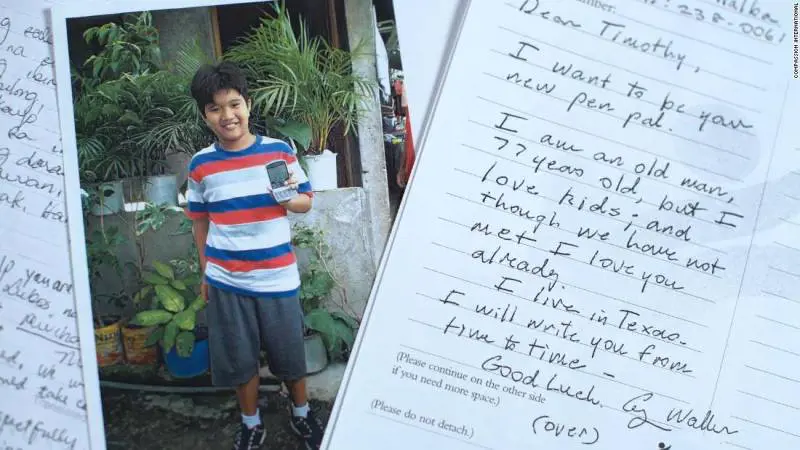 238-0061
Dear Timothy,
I want to be your
new pen pal.
I am an old man,
77 years old, but I
love kids; and
though we have not
met I love you
already.
I live in Texas.
I will write you from
time to time –
Good Luck. G. Walker
(Please continue on the other side
if you need more space.)
(over)
(Please do not detach.)
you are
take
COMPASSION INTERNATIONAL